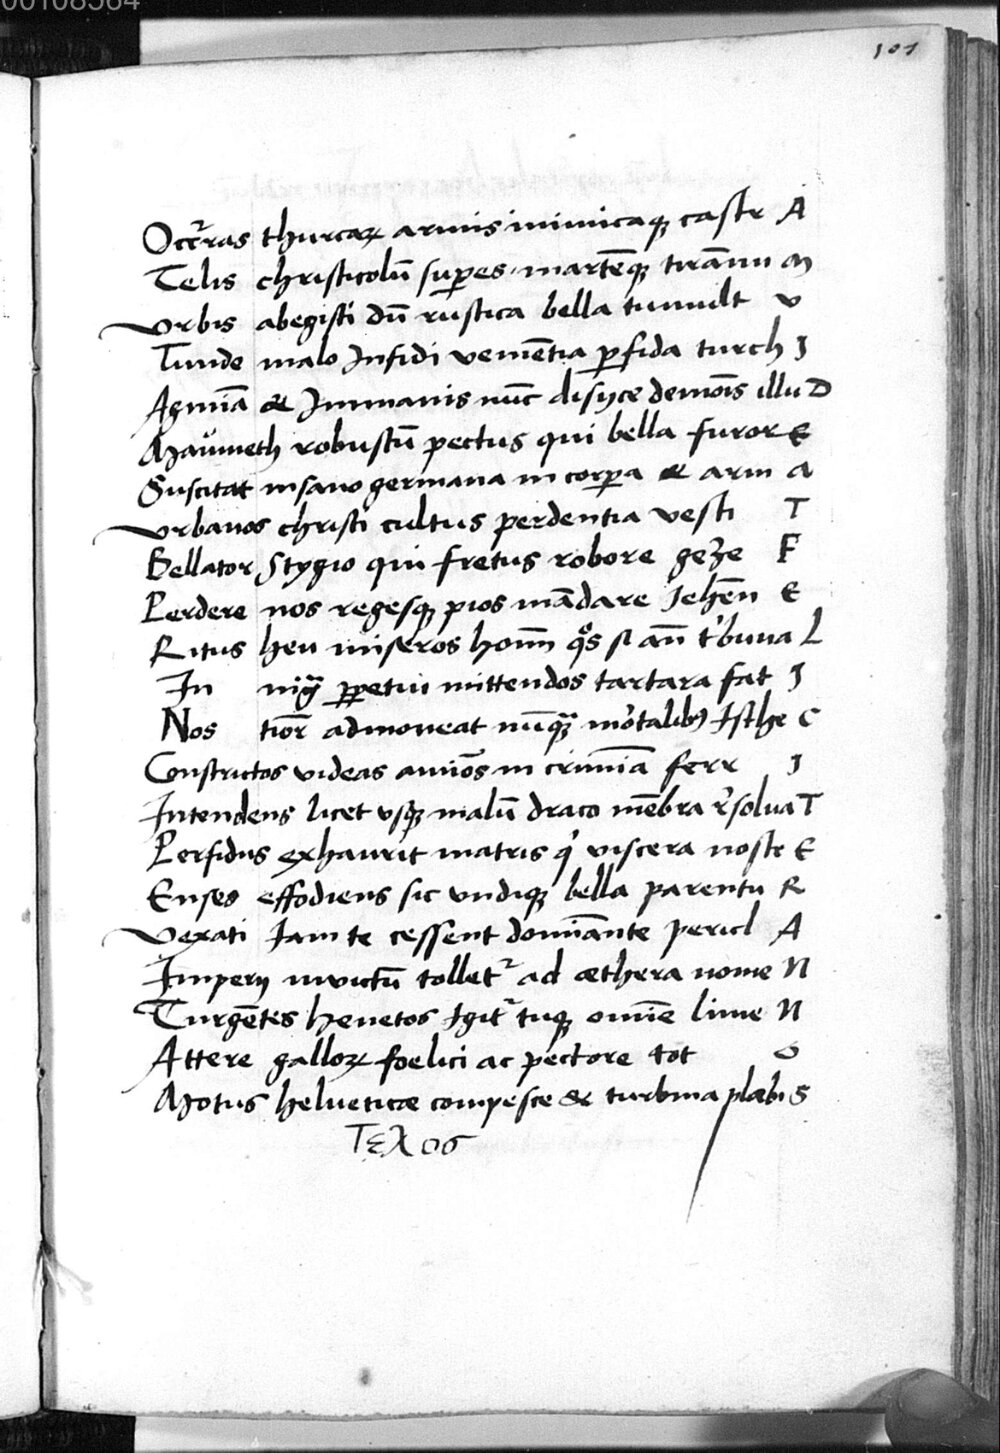 00108564
101
Occr̄ras thurcaꝝ armis inimicaqꝫ castr A
Telis christicolū suꝑes martēqꝫ tirānu M
Vrbis abegisti dū rustica bella tumult V
Tunde malo Infidi vementia ꝑfida turch I
Agmīa & Immanis nūc disijce demōis illu D
Maumeth robustū pectus qui bella furor E
Suscitat insano germana in corꝑa & arm A
Vrbanos christi cultus perdentia vesti T
Bellator Stygio qui fretus robore geze F
Perdere nos regesqꝫ pios mādare Jehēn E
Ritus heu miseros hoīm si an̄ buna L
In ꝑpetui mittendos tartara fat I
Nos admoveat nūqꝫ mortalibꝰ Isthe C
Constrictos videas amiōs in crimīa ferr I
Intendens licet vsqꝫ malū draco mēbra r̄solua T
Perfidus exhaurit matris viscera nostr E
Enses effodiens sic vndiqꝫ bella parentu R
Vexati Iam te cessent domīante pericl A
Imperij invictū tolletr̄ ad æthera nome N
Turgētes henetos Igitr̄ tuqꝫ omīe lime N
Attere galloꝝ foelici ac pectore tot O
Motus helueticæ compesce & turbina plæbi S
Τελος